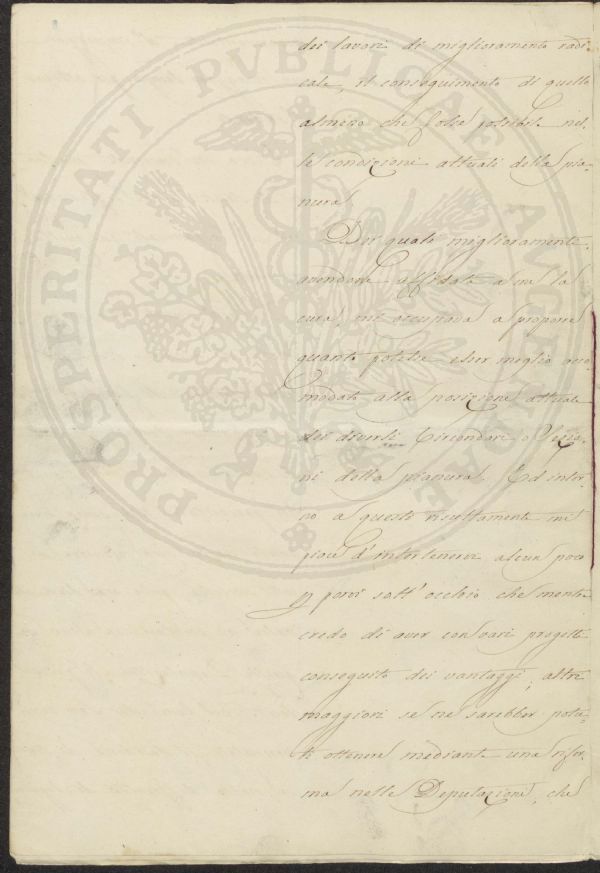 dei lavori di miglioramento radi-
cale, il conseguimento di quello
almeno che fosse possibile nel-
le condizioni attuali della pia-
nura.
Dei quali miglioramenti
avendone affidata a me la
cura, me occupava a proporre
quanto potesse esser meglio acco-
modato alla posizione attuale
dei diversi Circondari o
ni della pianura. Ed intor-
no a questo risultamento mi
piace d'intertenervi alcun poco
p porvi sott'occhio che mentre
credo di aver con vari progetti
conseguito dei vantaggi, altri
maggiori se ne sarebber potu-
ti ottenere mediante una rifor-
ma nelle Deputazioni, che
PROSPERITATI PUBLICAE AUGENDAE